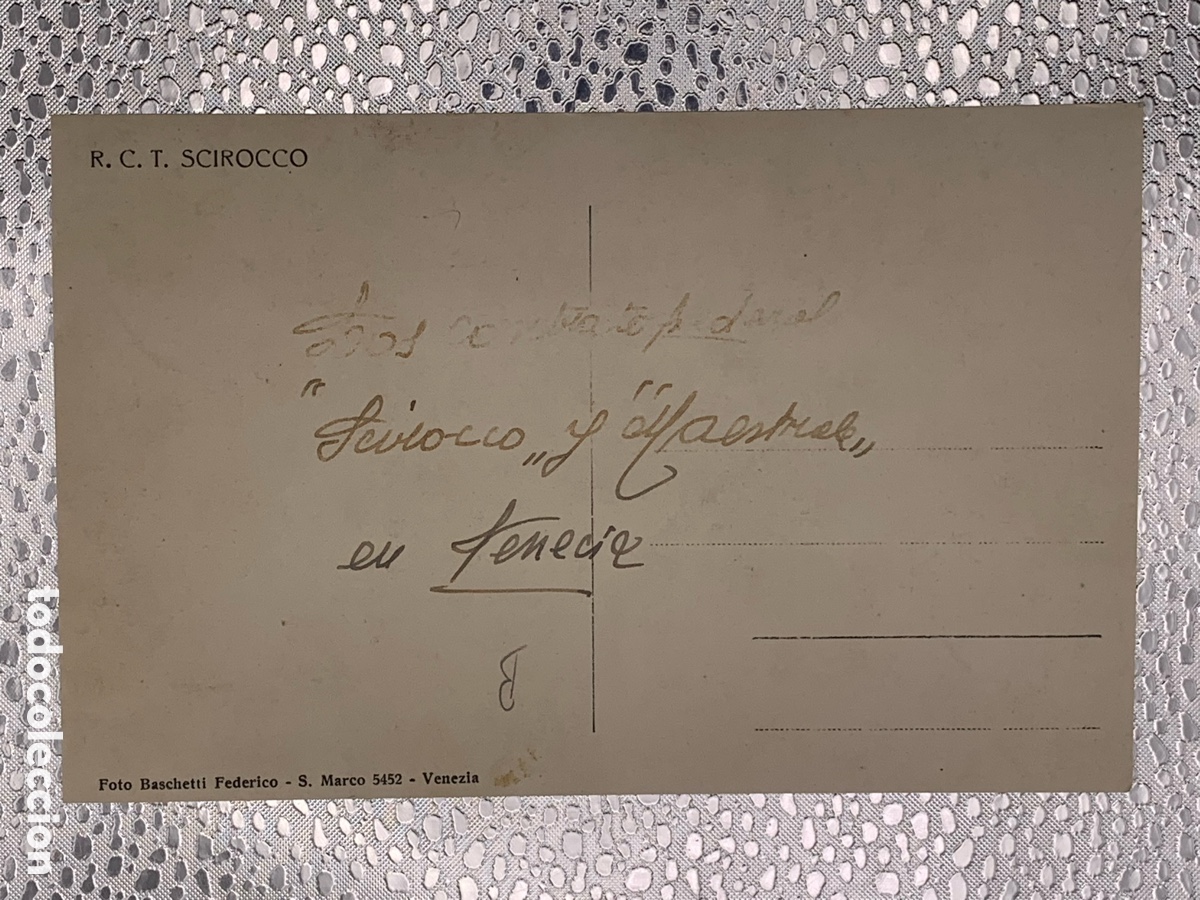 R. C. T. SCIROCCO
Dos
"Scirocco„ y "Maestrale„
en Venecia
Foto Baschetti Federico - S. Marco 5452 - Venezia
todocoleccion